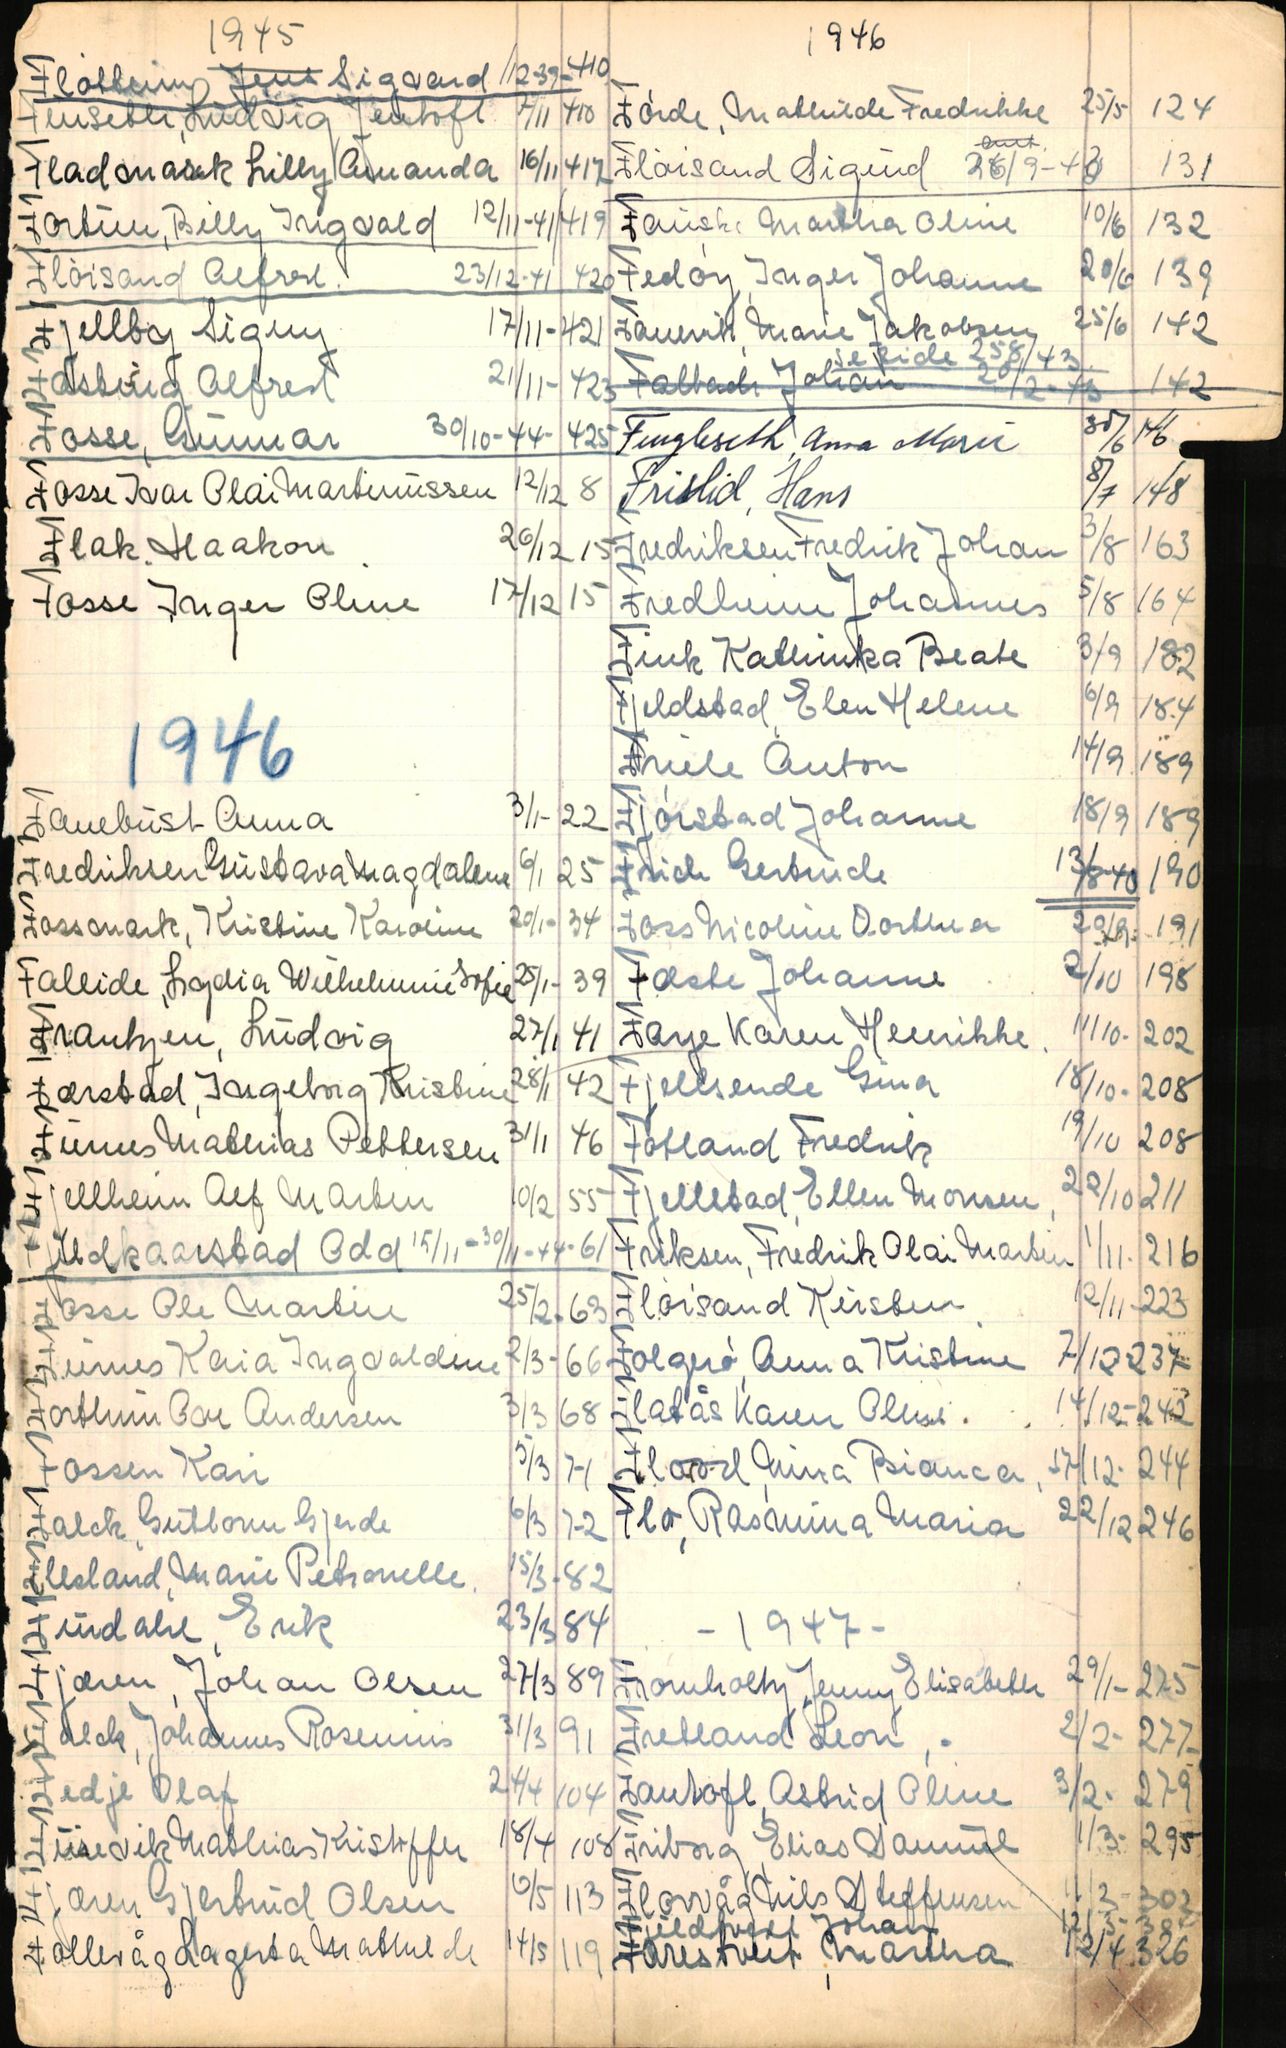 1945
Fløtheim Jens Sigvard 1/12-39-410
Ludvig Jentoft 7/11 410
Fladmark Lilly Amanda 16/11 417
Fortun, Billy Ingvald 12/11-41 419
Fløisand Alfred. 23/12-41 420
Fjellby Signy 17/11-421
Fasting Alfred 21/11-423
Fosse, Gunnar 30/10-44-425
Fosse Ivar Olai Martinussen 12/12 8
Flak, Haakon 26/12 15
Fosse, Inger Oline 17/12 15
1946
Fanebust Anna 3/1-22
Fredriksen Gustava Magdalene 6/1 25
Fossmark, Kristine Karoline 20/1-34
Falleide, Lydia Wilhelmine Sofie 25/1-39
Frantzen, Ludvig 27/1 41
Færstad, Ingeborg Kristine 28/1 42
Furnes Mathias Pettersen 31/1 46
Fjellheim Alf Martin 10/2 55
Fjeldkaarstad Odd 15/11-30/11-44-61
Fosse Ole Martin 25/2-63
Furnes Kaia Ingvaldine 2/3-66
Forthun Andersen 3/3 68
Fossen Kari 5/3 71
Falck, Guttorm Gjerde 6/3 72
Flesland, Marie Petronelle. 15/3-82
Furdahl, Erik 23/3 84
Fjæren, Johan Olsen 27/3 89
Falck, Johannes Rosenius 31/3 91
Fedje Olaf 24/4 104
Furevik Mathias Kristoffer 18/4 108
Fjæren Gjertrud Olsen 6/5 113
Follevåg Lagerta Mathilde 14/5 119
1946
Førde, Mathilde Fredrikke 25/5 124
Fløisand Sigurd 131
Fauske Martha Oline 10/6 132
Fedøy, Inger Johanne 20/6 139
Marie Jakobsen 25/6 142
se side 258/43
Faltbach Johan 142
Fungleseth, Anna Marie 30/6 146
Fristid, Hans 8/7 148
Fredriksen Fredrik Johan 3/8 163
Fredheim Johannes 5/8 164
Fink Kathinka Beate 3/9 182
Fjeldstad, Elen Helene 6/9 184
Friele Anton 14/9 189
Fjørstad Johanne 18/9 189
Frich Gertrude 13/8-40 190
Foss Nicoline Dorthea 20/9-191
Fæste Johanne 2/10 198
Faye Karen Henrikke. 11/10-202
Fjellsende Gina 18/10-208
Fotland Fredrik 19/10 208
Fjellstad, Ellen Monsen, 22/10 211
Friksen, Fredrik Olai Martin 1/11-216
Fløisand Kirsten 12/11-223
Folgerø, Anna Kristine 7/12-237
Flatås Karen Oline. 14/12-243
Flood, Nina Bianca, 17/12-244
Flo, Rasmina Maria 22/12 246
-1947-
Fromholtz, Jenny Elisabeth 29/1-275
Fretland Leon, 2/2-277
Fantoft, Astrid Oline 3/2-279
Friborg, Elias Samuel 1/3-295
Florvåg Nils Steffensen 11/3-302
Johan
Farestveit, Martha 12/4 326